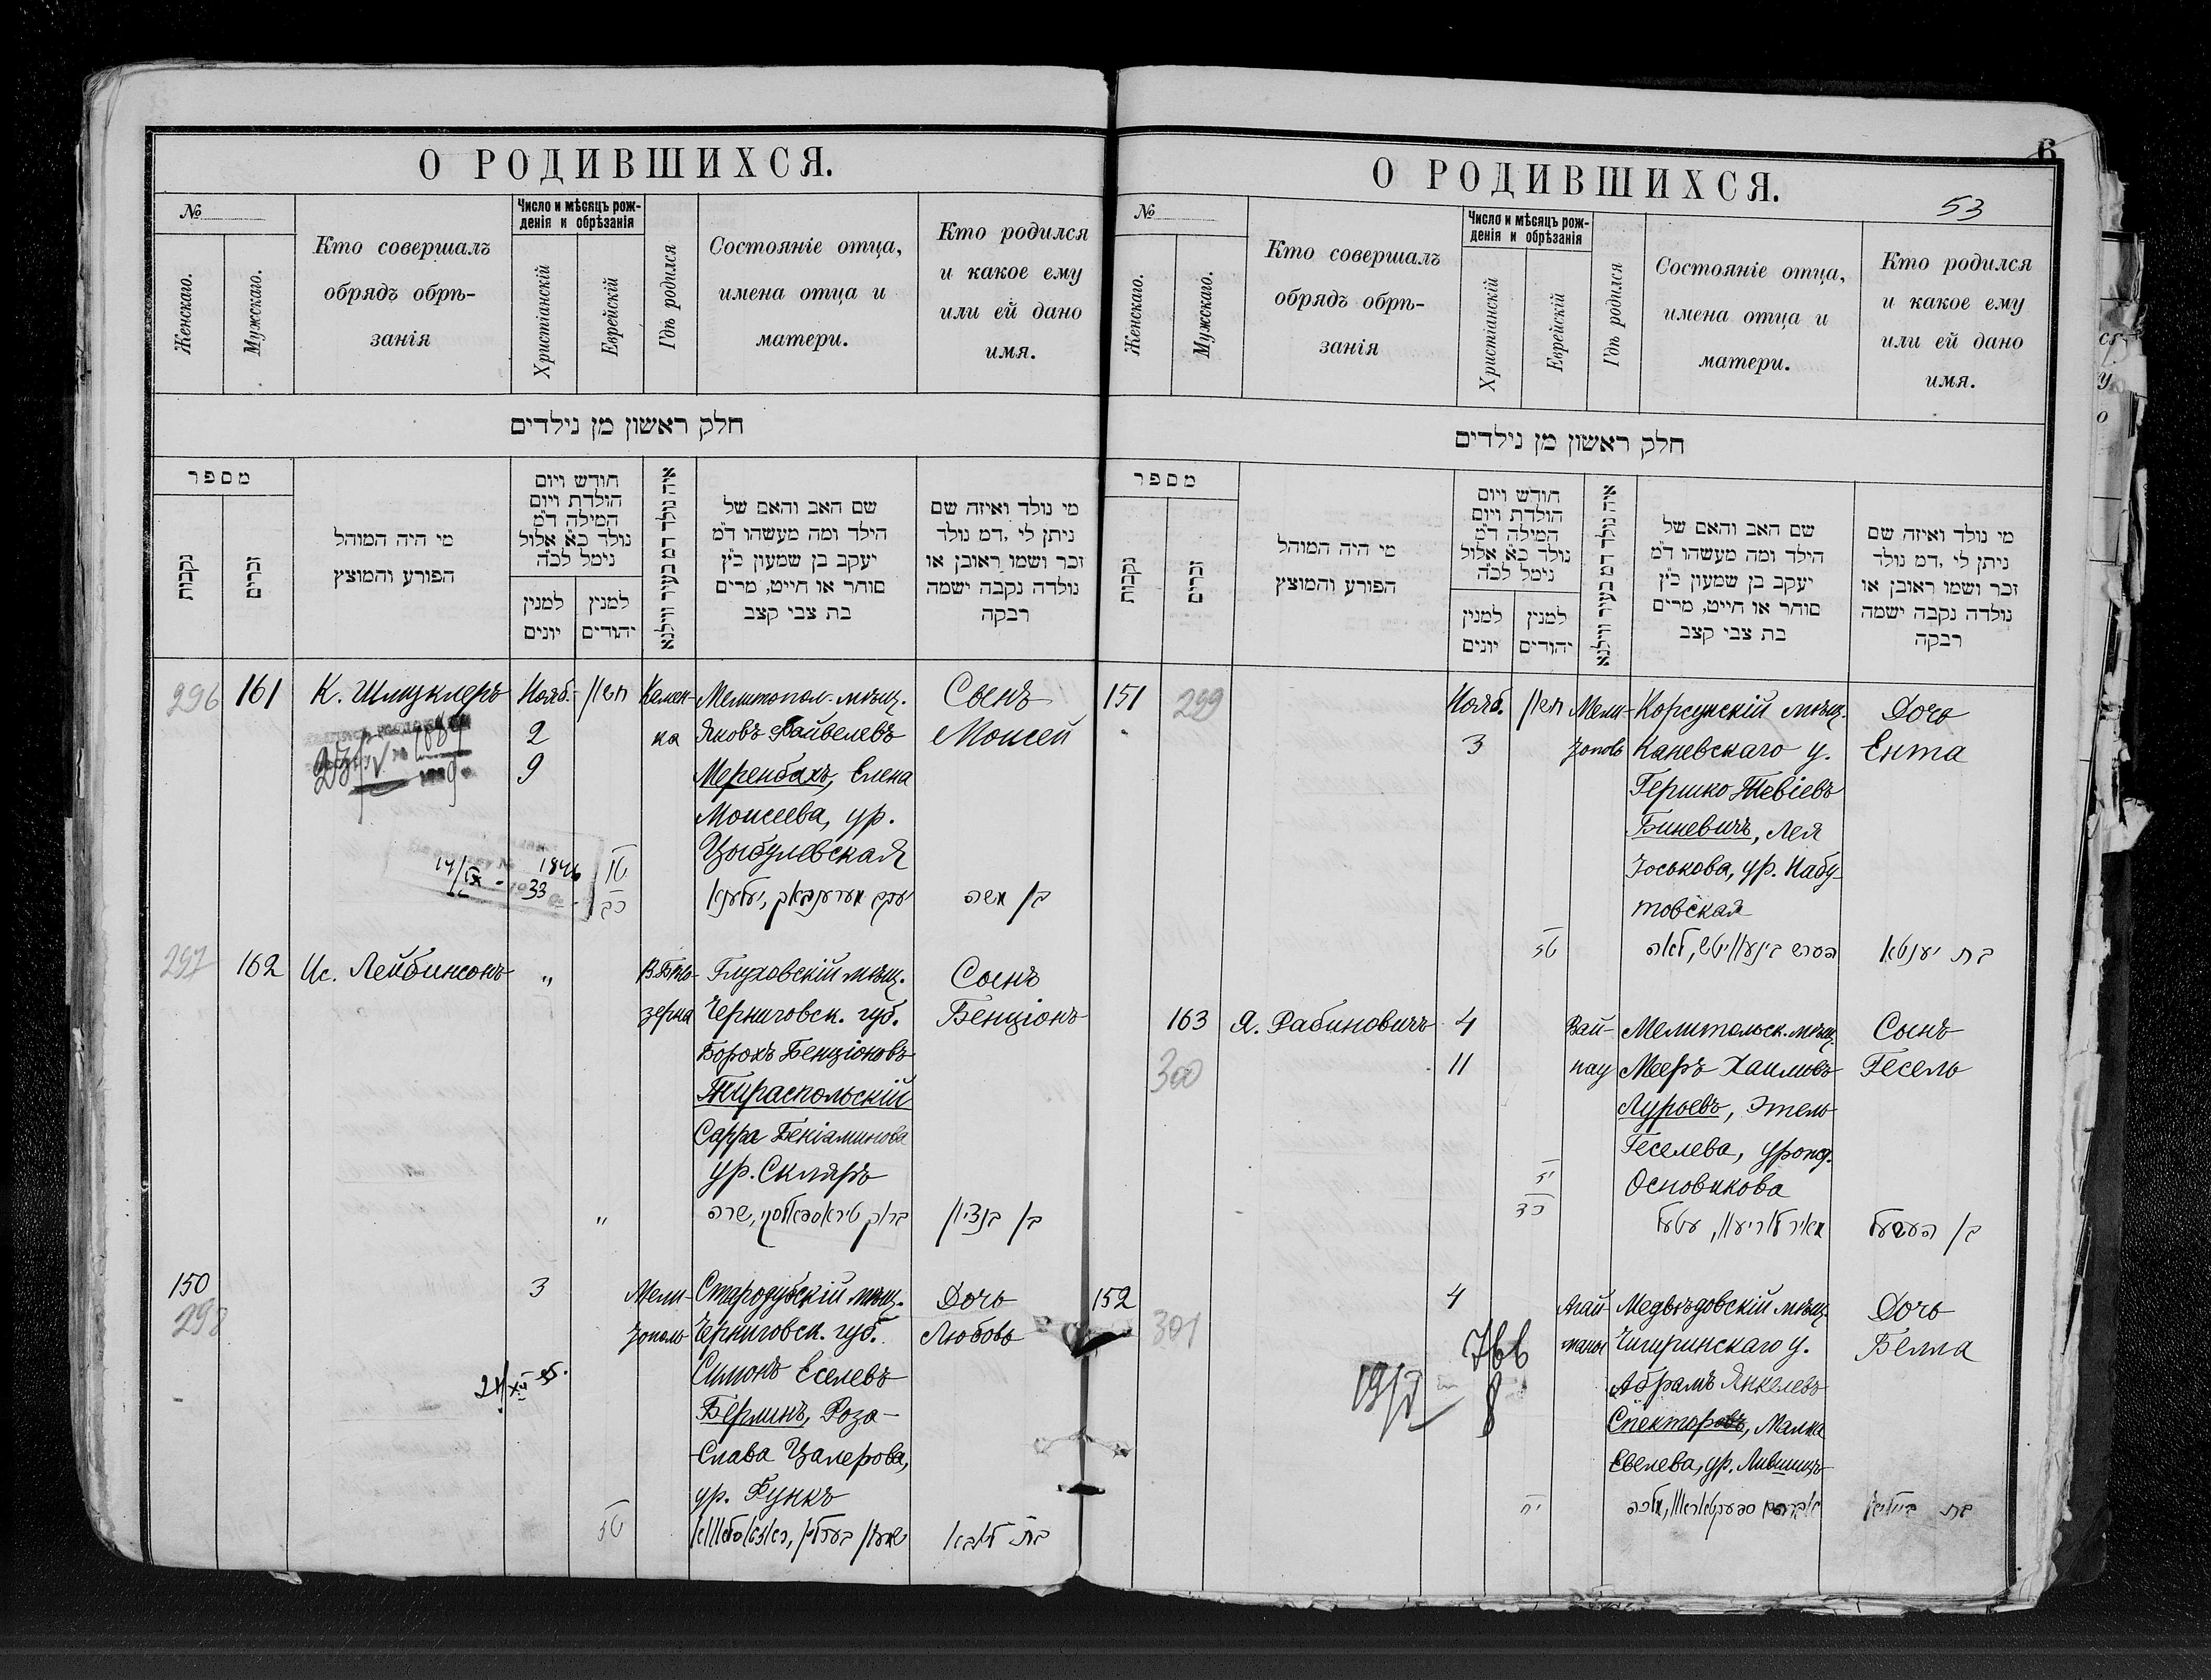 О РОДИВШИХСЯ.
№
Женскаго.
Мужскаго.
Кто совершалъ
обрядъ обрѣ-
занія
Число и мѣсяцъ рож-
денія и обрѣзанія
Христіанскій
Еврейскій
Гдѣ родился
Состояніе отца,
имена отца и
матери.
Кто родился
и какое ему
или ей дано
имя.
חלק ראשון מן נילדים
מספר
נקבות
זכרים
מי היה המוהל
הפורע והמוצץ
חודש ויום
הולדת ויום
המילה ד״מ
נולד כ״א אלול
נימל לכ״ה
למנין
יונים
למנין
יהודים
איה נולד דמ בעיר ווילנא
שם האב והאם של
הילד ומה מעשהו ד״מ
יעקב בן שמעון כ״ץ
סוחר או חייט, מרים
בת צבי קצב
מי נולד ואיזה שם
ניתן לי ,דמ נולד
זכר ושמו ראובן או
נולדה נקבה ישמה
רבקה
296
161
К. Шлизклеръ
Нояб.
2
9
חשון
Камен-
ка
Мелитопол. мѣщ.
Яковъ Файвелевъ
Меренбахъ, Елена
Моисеева, ур.
Цыбулевская
Сынъ
Моисей
14/IX - 33
1846
טו
כב
יעקב מערענבאך, יעלענא
בן משה
297
162
Ис. Лейбинсонъ
"
В.Бѣло-
зерка
Глуховскій мѣщ.
Черниговск. губ.
Борохъ Бенціоновъ
Тираспольскій
Сарра Беніаминова
ур. Скляръ
Сынъ
Бенціонъ
"
ברוך טיראספאלסקי, שרה
בן בנציון
150
298
3
Мели-
тополь
Стародубскій мѣщ.
Черниговск. губ.
Симонъ Еселевъ
Берлинъ, Роза-
Слава Цалерова,
ур. Функъ
Дочь
Любовь
טז
שמעון בערלין,
בת ליבא
О РОДИВШИХСЯ.
6
53
№
Женскаго.
Мужскаго.
Кто совершалъ
обрядъ обрѣ-
занія
Число и мѣсяцъ рож-
денія и обрѣзанія
Христіанскій
Еврейскій
Гдѣ родился
Состояніе отца,
имена отца и
матери.
Кто родился
и какое ему
или ей дано
имя.
חלק ראשון מן נילדים
מספר
נקבות
זכרים
מי היה המוהל
הפורע והמוצץ
חודש ויום
הולדת ויום
המילה ד״מ
נולד כ״א אלול
נימל לכ״ה
למנין
יונים
למנין
יהודים
איה נולד דמ בעיר ווילנא
שם האב והאם של
הילד ומה מעשהו ד״מ
יעקב בן שמעון כ״ץ
סוחר או חייט, מרים
בת צבי קצב
מי נולד ואיזה שם
ניתן לי ,דמ נולד
זכר ושמו ראובן או
נולדה נקבה ישמה
רבקה
151
299
Нояб.
3
חשון
Мели-
тополь
Корсунскій мѣщ.
Каневскаго у.
Гершко Тевіевъ
Биневичъ, Лея
Іоськова, ур. Набу-
товская
Дочь
Ента
טז
הערש בינעוויטש, לאה
בת יענטא
163
300
Я. Рабиновичъ
4
11
Вай-
нау
Мелитопольск. мѣщ.
Мееръ Хаимовъ
Лурьевъ, Этель
Геселева, урожд.
Основикова
Сынъ
Гесель
יז
כד
מאיר לוריעוו, עטעל
בן העסעל
152
301
4
Агай-
маны
Медвѣдовскій мѣщ.
Чигиринскаго у.
Абрамъ Янкелевъ
Спекторовъ, Малка
Евелева, ур. Лившицъ
Дочь
Белла
766
יז
אברהם ספעקטאראוו, מלכה
בת ביילא